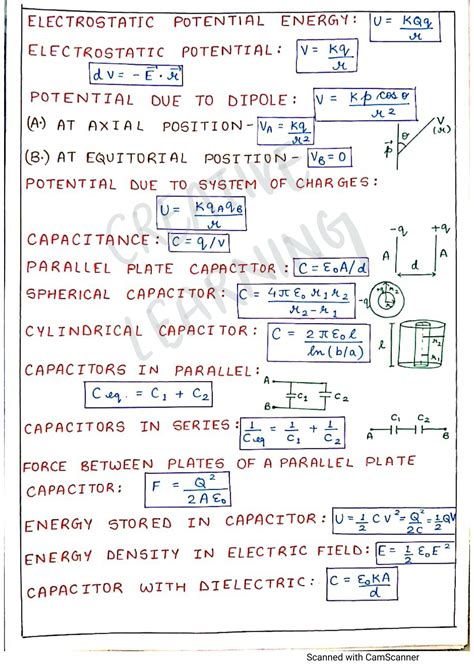 ELECTROSTATIC POTENTIAL ENERGY: U = KQq/r
ELECTROSTATIC POTENTIAL: V = Kq/r
dV = -E⃗·r⃗
POTENTIAL DUE TO DIPOLE: V = Kp cosθ/r²
(A.) AT AXIAL POSITION - V_A = Kq/r
(B.) AT EQUITORIAL POSITION - V_B = 0
V (r) θ p⃗
POTENTIAL DUE TO SYSTEM OF CHARGES:
U = Kq_A q_B/r
CAPACITANCE: C = q/V
-q +q
A A
d
PARALLEL PLATE CAPACITOR: C = ε₀A/d
SPHERICAL CAPACITOR: C = 4πε₀ r₁r₂/r₂-r₁
-q +q r₂
CYLINDRICAL CAPACITOR: C = 2πε₀l/ln(b/a)
l r₂ r₁
CAPACITORS IN PARALLEL:
C_eq. = C₁ + C₂
A B C₁ C₂
CAPACITORS IN SERIES: 1/C_eq = 1/C₁ + 1/C₂
C₁ C₂
A B
FORCE BETWEEN PLATES OF A PARALLEL PLATE
CAPACITOR: F = Q²/2Aε₀
ENERGY STORED IN CAPACITOR: U = 1/2 CV² = Q²/2C = 1/2 QV
ENERGY DENSITY IN ELECTRIC FIELD: E = 1/2 ε₀E²
CAPACITOR WITH DIELECTRIC: C = ε₀KA/d
CREATIVE
LEARNING
Scanned with CamScanner